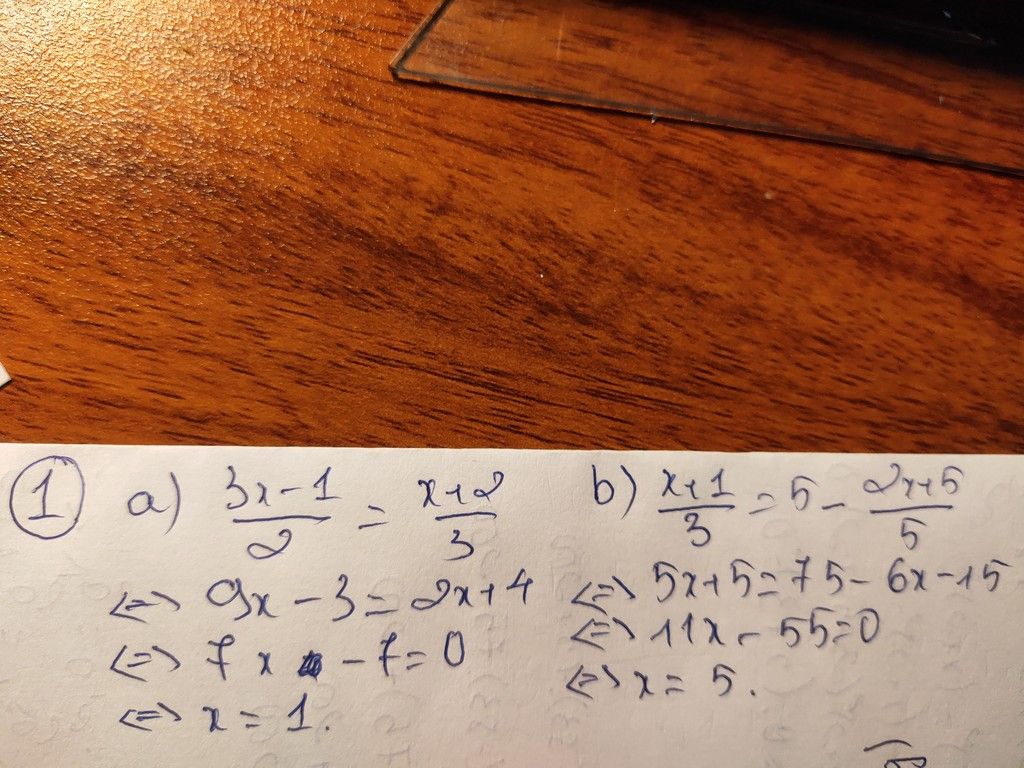 1 a) (3x-1)/2 = (x+2)/3
<=> 9x - 3 = 2x+4
<=> 7x - 7 = 0
<=> x = 1.
b) (x+1)/3 = 5 - (2x+5)/5
<=> 5x+5 = 75 - 6x - 15
<=> 11x - 55 = 0
<=> x = 5.